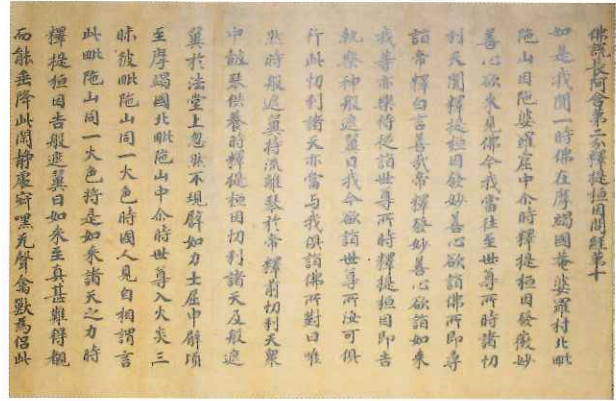 佛說長阿含第二分釋提桓因問經第十
如是我聞一時佛在摩竭國菴婆羅村北毗
陁山因陁婆羅窟中尒時釋提桓因發微妙
善心欲來見佛今我當往至世尊所時諸忉
利天聞釋提桓因發妙善心欲詣佛所即尋
詣帝釋白言善哉帝釋發妙善心欲詣如來
我等亦樂侍從詣世尊所時釋提桓因即告
執樂神般遮翼曰我今欲詣世尊所汝可俱
行此忉利諸天亦當與我俱詣佛所對曰唯
然時般遮翼持流離琴於帝釋前忉利天衆
中皷琴供養時釋提桓因忉利諸天及般遮
翼於法堂上忽然不現譬如力士屈申臂頃
至摩竭國北毗陁山中尒時世尊入火炎三
昧彼毗陁山同一火色時國人見自相謂言
此毗陁山同一火色將是如來諸天之力時
釋提桓因告般遮翼曰如來至真甚難得覩
而能垂降此閑静處寂嘿无聲禽獸爲侶此